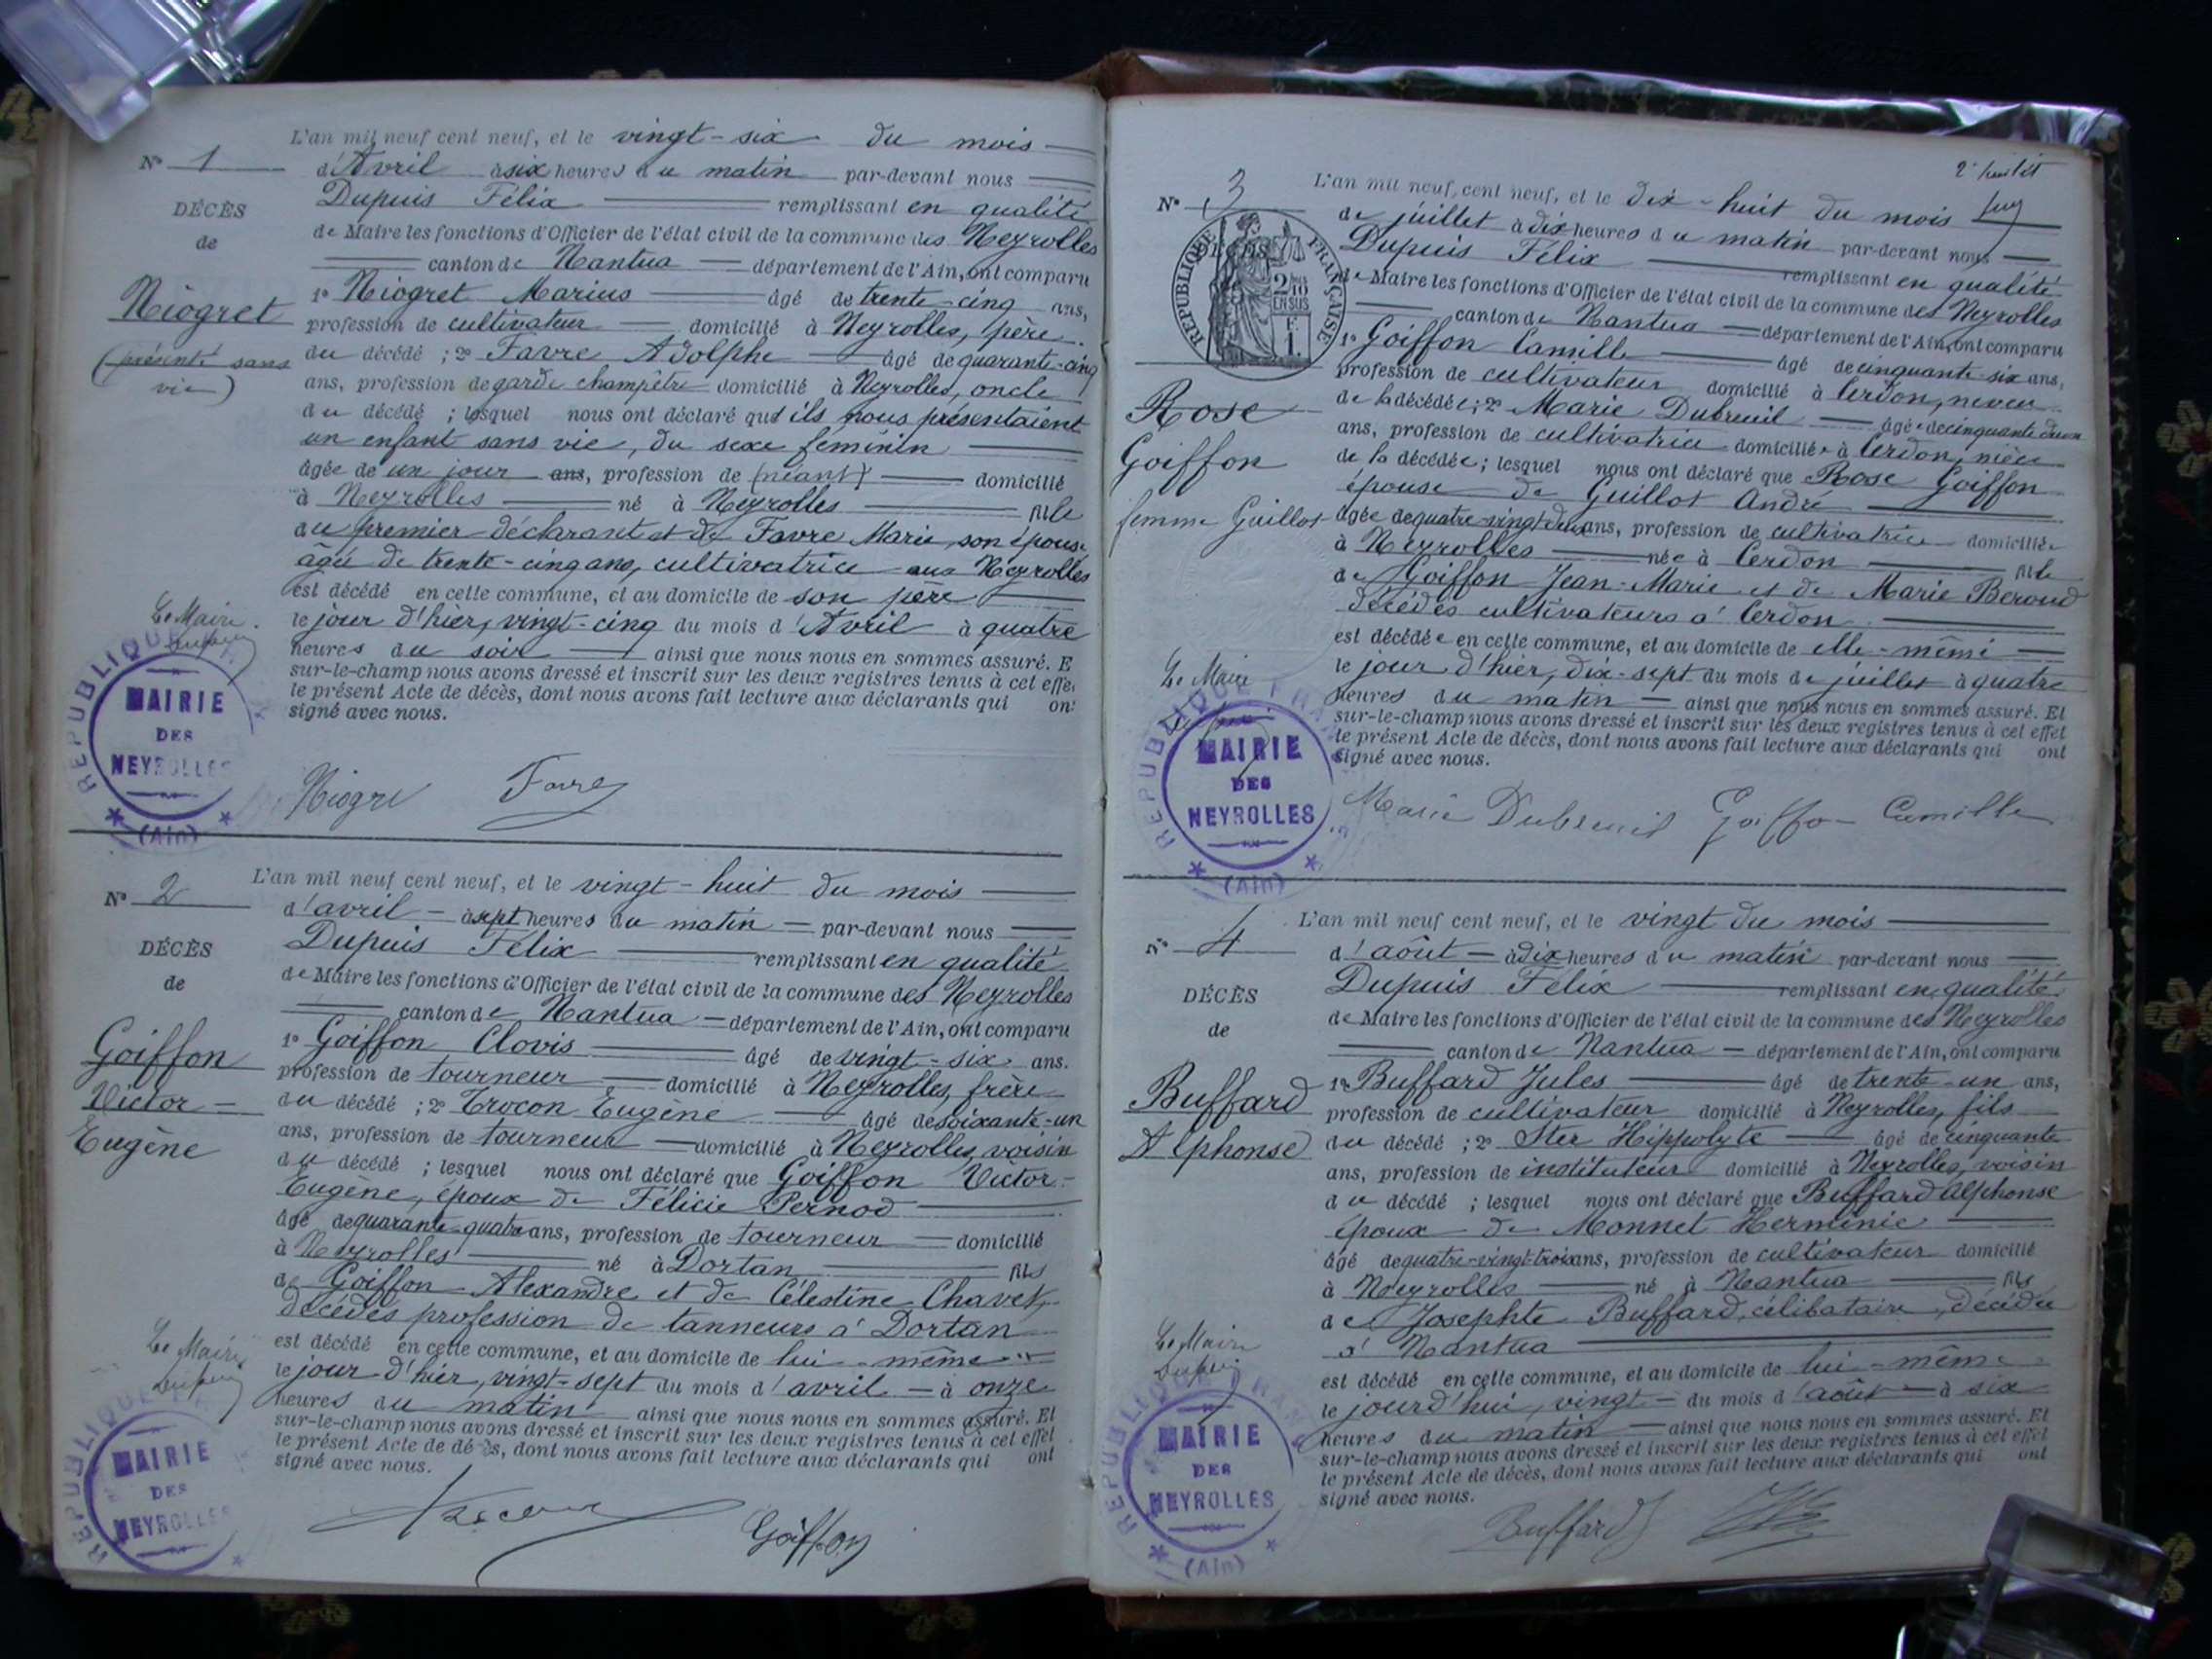 L'an mil neuf cent neuf, et le vingt-six du mois
N° 1
d'Avril à six heures du matin par-devant nous
Dupuis Félix remplissant en qualité
DÉCÈS
de
Niogret
(présenté sans
vie)
de Maire les fonctions d'Officier de l'état civil de la commune des Neyrolles
canton de Nantua département de l'Ain, ont comparu
1° Niogret Marius âgé de trente-cinq ans,
profession de cultivateur domicilié à Neyrolles, père
du décédé ; 2° Favre Adolphe âgé de quarante-cinq
ans, profession de garde champêtre domicilié à Neyrolles, oncle
du décédé ; lesquel nous ont déclaré qu'ils nous présentaient
un enfant sans vie, du sexe féminin
âgée de un jour ans, profession de (néant) domicilié
à Neyrolles né à Neyrolles fille
du premier déclarant et de Favre Marie, son épouse
âgée de trente-cinq ans, cultivatrice aux Neyrolles
est décédé en cette commune, et au domicile de son père
le jour d'hier, vingt-cinq du mois d'Avril à quatre
heures du soir ainsi que nous nous en sommes assuré. E
sur-le-champ nous avons dressé et inscrit sur les deux registres tenus à cet effe
le présent Acte de décès, dont nous avons fait lecture aux déclarants qui on
signé avec nous.
Le Maire
Dupuis
REPUBLIQUE
MAIRIE
DES
NEYROLLES
(Ain)
Niogre Favre
N° 2
L'an mil neuf cent neuf, et le vingt-huit du mois
d'avril à sept heures du matin par-devant nous
Dupuis Félix remplissant en qualité
DÉCÈS
de
Goiffon
Victor
Eugène
de Maire les fonctions d'Officier de l'état civil de la commune des Neyrolles
canton de Nantua département de l'Ain, ont comparu
1° Goiffon Clovis âgé de vingt-six ans.
profession de tourneur domicilié à Neyrolles, frère
du décédé ; 2° Trocon Eugène âgé de soixante-un
ans, profession de tourneur domicilié à Neyrolles, voisin
du décédé ; lesquel nous ont déclaré que Goiffon Victor-
Eugène, époux de Félicie Pernod
âgé de quarante-quatre ans, profession de tourneur domicilié
à Neyrolles né à Dortan fils
de Goiffon Alexandre et de Célestine Chavet,
décédés profession de tanneurs à Dortan
est décédé en cette commune, et au domicile de lui-même
le jour d'hier, vingt-sept du mois d'avril à onze
heures du matin ainsi que nous nous en sommes assuré. Et
sur-le-champ nous avons dressé et inscrit sur les deux registres tenus à cet effet
le présent Acte de décès, dont nous avons fait lecture aux déclarants qui ont
signé avec nous.
Le Maire
Dupuis
REPUBLIQUE
MAIRIE
DES
NEYROLLES
Trocon Goiffon
2e feuillet
N° 3
L'an mil neuf cent neuf, et le dix-huit du mois
de juillet à dix heures du matin par-devant nous
Dupuis Félix remplissant en qualité
REPUBLIQUE FRANÇAISE
2/10
EN SUS
F.
1.
Rose
Goiffon
femme Guillot
de Maire les fonctions d'Officier de l'état civil de la commune des Neyrolles
canton de Nantua département de l'Ain, ont comparu
1° Goiffon Camille âgé de cinquante-six ans,
profession de cultivateur domicilié à Cerdon, neveu
de la décédée ; 2° Marie Dubreuil âgée de cinquante deux
ans, profession de cultivatrice domiciliée à Cerdon, nièce
de la décédée ; lesquel nous ont déclaré que Rose Goiffon
épouse de Guillot André
âgée de quatre-vingt-deux ans, profession de cultivatrice domiciliée
à Neyrolles née à Cerdon fille
de Goiffon Jean-Marie et de Marie Beroud
décédés cultivateurs à Cerdon
est décédée en cette commune, et au domicile de elle-même
le jour d'hier, dix-sept du mois de juillet à quatre
heures du matin ainsi que nous nous en sommes assuré. Et
sur-le-champ nous avons dressé et inscrit sur les deux registres tenus à cet effet
le présent Acte de décès, dont nous avons fait lecture aux déclarants qui ont
signé avec nous.
Le Maire
REPUBLIQUE FRAN
MAIRIE
DES
NEYROLLES
(Ain)
Marie Dubreuil Goiffon Camille
N° 4
L'an mil neuf cent neuf, et le vingt du mois
d'août à dix heures du matin par-devant nous
Dupuis Félix remplissant en qualité
DÉCÈS
de
Buffard
Alphonse
de Maire les fonctions d'Officier de l'état civil de la commune des Neyrolles
canton de Nantua département de l'Ain, ont comparu
1° Buffard Jules âgé de trente-un ans,
profession de cultivateur domicilié à Neyrolles, fils
du décédé ; 2° Ster Hippolyte âgé de cinquante
ans, profession de instituteur domicilié à Neyrolles, voisin
du décédé ; lesquel nous ont déclaré que Buffard Alphonse
époux de Monnet Herminie
âgé de quatre-vingt-trois ans, profession de cultivateur domicilié
à Neyrolles né à Nantua fils
de Josephte Buffard, célibataire, décédée
à Nantua
est décédé en cette commune, et au domicile de lui-même
le jourd'hui, vingt du mois d'août à six
heures du matin ainsi que nous nous en sommes assuré. Et
sur-le-champ nous avons dressé et inscrit sur les deux registres tenus à cet effet
le présent Acte de décès, dont nous avons fait lecture aux déclarants qui ont
signé avec nous.
Le Maire
Dupuis
REPUBLIQUE FRAN
MAIRIE
DES
NEYROLLES
(Ain)
Buffard